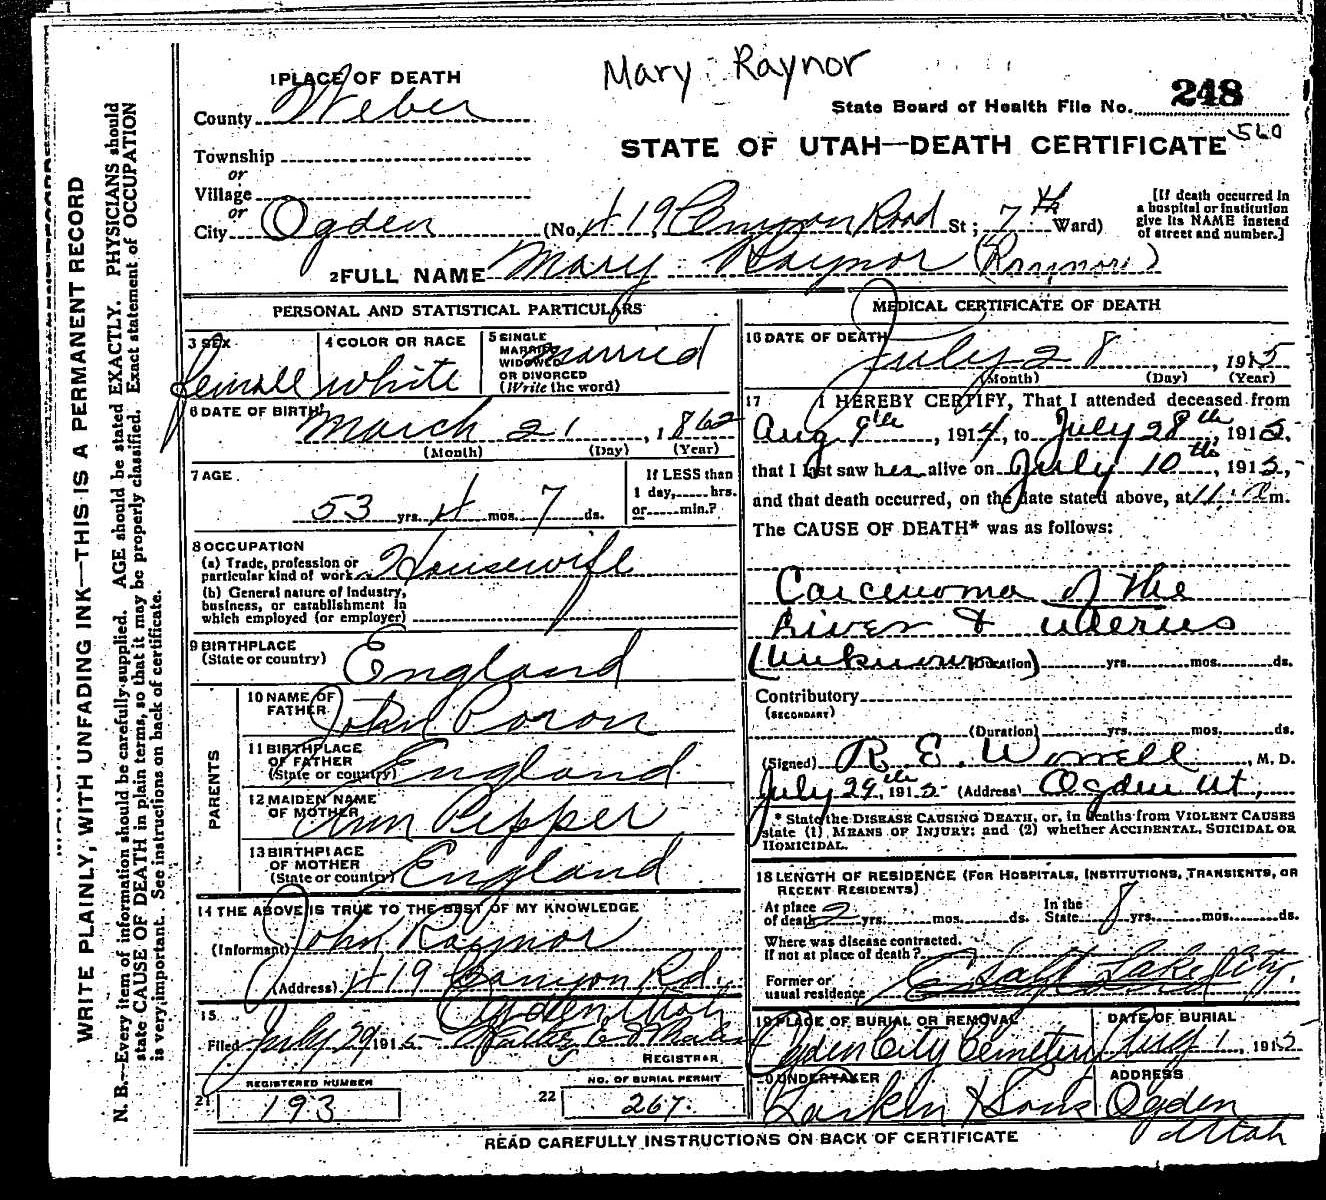 Mary Raynor
1 PLACE OF DEATH
County Weber
State Board of Health File No. 248
STATE OF UTAH—DEATH CERTIFICATE
Township
or
Village
or
City Ogden (No. 419 Canyon Road St; 7th Ward)
[If death occurred in a hospital or institution give its NAME instead of street and number.]
2 FULL NAME Mary Raynor (Raynor)
PERSONAL AND STATISTICAL PARTICULARS
3 SEX
Female
4 COLOR OR RACE
white
5 SINGLE
MARRIED
WIDOWED
OR DIVORCED
(Write the word)
Married
6 DATE OF BIRTH
March 21, 1862
(Month) (Day) (Year)
7 AGE
53 yrs. 4 mos. 7 ds.
If LESS than
1 day,.....hrs.
or.....min.?
8 OCCUPATION
(a) Trade, profession or
particular kind of work Housewife
(b) General nature of industry,
business, or establishment in
which employed (or employer)
9 BIRTHPLACE
(State or country) England
PARENTS
10 NAME OF
FATHER John Poron
11 BIRTHPLACE
OF FATHER
(State or country) England
12 MAIDEN NAME
OF MOTHER Ann Pepper
13 BIRTHPLACE
OF MOTHER
(State or country) England
14 THE ABOVE IS TRUE TO THE BEST OF MY KNOWLEDGE
(Informant) John Raynor
(Address) 419 Canyon Rd.
Ogden Utah
15
Filed July 29 1915
REGISTRAR
REGISTERED NUMBER
21 193
NO. OF BURIAL PERMIT
22 267.
MEDICAL CERTIFICATE OF DEATH
16 DATE OF DEATH
July 28, 1915
(Month) (Day) (Year)
17 I HEREBY CERTIFY, That I attended deceased from
Aug 9th, 1914, to July 28th, 1915,
that I last saw her alive on July 10th, 1915,
and that death occurred, on the date stated above, at 11: m.
The CAUSE OF DEATH* was as follows:
Carcinoma of the
Liver & uterus
(Unknown Duration) yrs. mos. ds.
Contributory
(SECONDARY)
(Duration) yrs. mos. ds.
(Signed) R. E. Worrell, M. D.
July 29th, 1915 (Address) Ogden Ut,
* State the DISEASE CAUSING DEATH, or, in deaths from VIOLENT CAUSES
state (1) MEANS OF INJURY; and (2) whether ACCIDENTAL, SUICIDAL OR
HOMICIDAL.
18 LENGTH OF RESIDENCE (FOR HOSPITALS, INSTITUTIONS, TRANSIENTS, OR
RECENT RESIDENTS)
At place
of death 2 yrs. mos. ds.
In the
State 8 yrs. mos. ds.
Where was disease contracted,
if not at place of death?
Former or
usual residence Salt Lake City.
19 PLACE OF BURIAL OR REMOVAL
Ogden City Cemetery
DATE OF BURIAL
1, 1915
20 UNDERTAKER
Larkin & Sons
ADDRESS
Ogden
Utah
READ CAREFULLY INSTRUCTIONS ON BACK OF CERTIFICATE
WRITE PLAINLY, WITH UNFADING INK—THIS IS A PERMANENT RECORD
N. B.—Every item of information should be carefully supplied. AGE should be stated EXACTLY. PHYSICIANS should
state CAUSE OF DEATH in plain terms, so that it may be properly classified. Exact statement of OCCUPATION
is very important. See instructions on back of certificate.